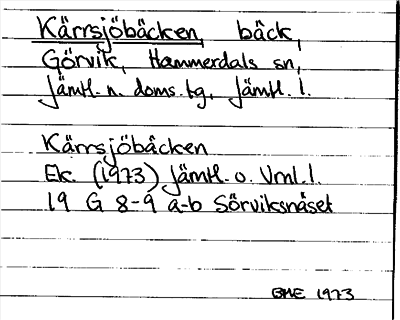 Kärrsjöbäcken, bäck,
Görvik, Hammerdals sn,
Jämtl. n. doms. tg, Jämtl. l.
Kärrsjöbäcken
Ek. (1973) Jämtl. o. Vrml. l.
19 G 8-9 a-b Sörviksnäset
BME 1973